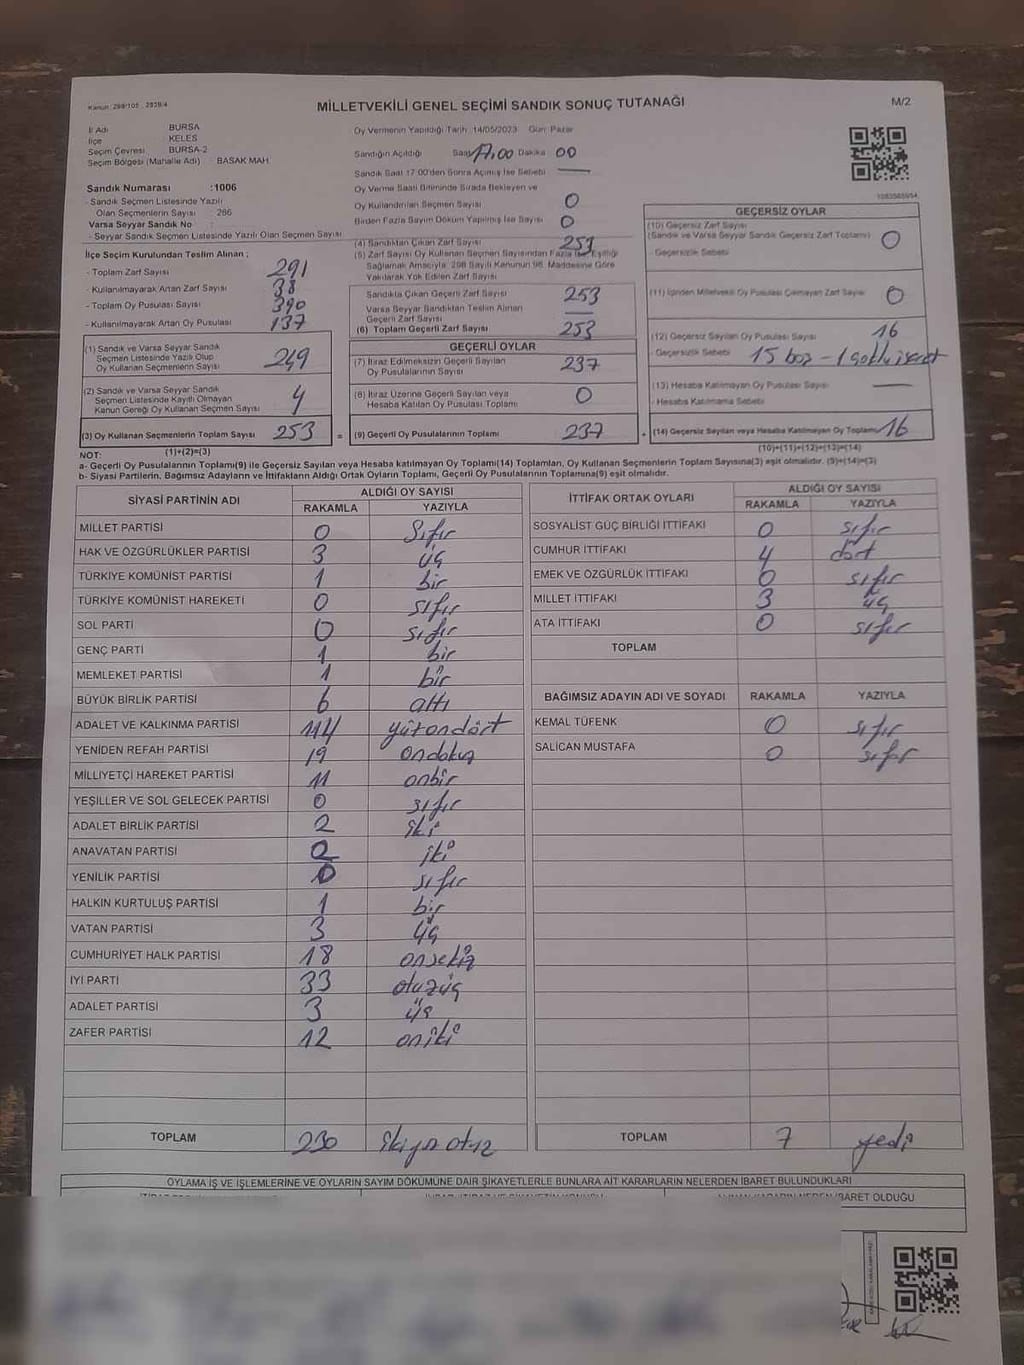 Kanun: 298/105 , 2839/4
MİLLETVEKİLİ GENEL SEÇİMİ SANDIK SONUÇ TUTANAĞI
M/2
İl Adı BURSA
İlçe KELES
Seçim Çevresi BURSA-2
Seçim Bölgesi (Mahalle Adı) : BASAK MAH.
Sandık Numarası :1006
- Sandık Seçmen Listesinde Yazılı
Olan Seçmenlerin Sayısı : 286
Varsa Seyyar Sandık No :
- Seyyar Sandık Seçmen Listesinde Yazılı Olan Seçmen Sayısı :
İlçe Seçim Kurulundan Teslim Alınan ;
- Toplam Zarf Sayısı 291
- Kullanılmayarak Artan Zarf Sayısı 38
- Toplam Oy Pusulası Sayısı 390
- Kullanılmayarak Artan Oy Pusulası 137
(1) Sandık ve Varsa Seyyar Sandık
Seçmen Listesinde Yazılı Olup
Oy Kullanan Seçmenlerin Sayısı 249
(2) Sandık ve Varsa Seyyar Sandık
Seçmen Listesinde Kayıtlı Olmayan
Kanun Gereği Oy Kullanan Seçmen Sayısı 4
(3) Oy Kullanan Seçmenlerin Toplam Sayısı 253 =
(1)+(2)=(3)
Oy Vermenin Yapıldığı Tarih: 14/05/2023 Gün: Pazar
Sandığın Açıldığı Saat 17.00 Dakika 00
Sandık Saat 17:00'den Sonra Açılmış İse Sebebi —
Oy Verme Saati Bitiminde Sırada Bekleyen ve
Oy Kullandırılan Seçmen Sayısı 0
Birden Fazla Sayım Döküm Yapılmış İse Sayısı 0
(4) Sandıktan Çıkan Zarf Sayısı 253
(5) Zarf Sayısı Oy Kullanan Seçmen Sayısından Fazla İse, Eşitliği
Sağlamak Amacıyla, 298 Sayılı Kanunun 98. Maddesine Göre
Yakılarak Yok Edilen Zarf Sayısı
Sandıkta Çıkan Geçerli Zarf Sayısı 253
Varsa Seyyar Sandıktan Teslim Alınan
Geçerli Zarf Sayısı —
(6) Toplam Geçerli Zarf Sayısı 253
GEÇERLİ OYLAR
(7) İtiraz Edilmeksizin Geçerli Sayılan
Oy Pusulalarının Sayısı 237
(8) İtiraz Üzerine Geçerli Sayılan veya
Hesaba Katılan Oy Pusulası Toplamı 0
(9) Geçerli Oy Pusulalarının Toplamı 237 +
GEÇERSİZ OYLAR
(10) Geçersiz Zarf Sayısı
(Sandık ve Varsa Seyyar Sandık Geçersiz Zarf Toplamı) 0
- Geçersizlik Sebebi
(11) İçinden Milletvekili Oy Pusulası Çıkmayan Zarf Sayısı 0
(12) Geçersiz Sayılan Oy Pusulası Sayısı 16
- Geçersizlik Sebebi 15 boş - 1
(13) Hesaba Katılmayan Oy Pusulası Sayısı —
- Hesaba Katılmama Sebebi
(14) Geçersiz Sayılan veya Hesaba Katılmayan Oy Toplamı 16
(10)+(11)+(12)+(13)=(14)
NOT:
a- Geçerli Oy Pusulalarının Toplamı(9) ile Geçersiz Sayılan veya Hesaba katılmayan Oy Toplamı(14) Toplamları, Oy Kullanan Seçmenlerin Toplam Sayısına(3) eşit olmalıdır. (9)+(14)=(3)
b- Siyasi Partilerin, Bağımsız Adayların ve İttifakların Aldığı Ortak Oyların Toplamı, Geçerli Oy Pusulalarının Toplamına(9) eşit olmalıdır.
SİYASİ PARTİNİN ADI ALDIĞI OY SAYISI
RAKAMLA YAZIYLA
MİLLET PARTİSİ 0 Sıfır
HAK VE ÖZGÜRLÜKLER PARTİSİ 3 üç
TÜRKİYE KOMÜNİST PARTİSİ 1 bir
TÜRKİYE KOMÜNİST HAREKETİ 0 sıfır
SOL PARTİ 0 sıfır
GENÇ PARTİ 1 bir
MEMLEKET PARTİSİ 1 bir
BÜYÜK BİRLİK PARTİSİ 6 altı
ADALET VE KALKINMA PARTİSİ 114 yüzondört
YENİDEN REFAH PARTİSİ 19 ondokuz
MİLLİYETÇİ HAREKET PARTİSİ 11 onbir
YEŞİLLER VE SOL GELECEK PARTİSİ 0 sıfır
ADALET BİRLİK PARTİSİ 2 iki
ANAVATAN PARTİSİ 2 iki
YENİLİK PARTİSİ 0 sıfır
HALKIN KURTULUŞ PARTİSİ 1 bir
VATAN PARTİSİ 3 üç
CUMHURİYET HALK PARTİSİ 18 onsekiz
İYİ PARTİ 33 otuzüç
ADALET PARTİSİ 3 üç
ZAFER PARTİSİ 12 oniki
TOPLAM 230 ikiyüz otuz
İTTİFAK ORTAK OYLARI ALDIĞI OY SAYISI
RAKAMLA YAZIYLA
SOSYALİST GÜÇ BİRLİĞİ İTTİFAKI 0 sıfır
CUMHUR İTTİFAKI 4 dört
EMEK VE ÖZGÜRLÜK İTTİFAKI 0 sıfır
MİLLET İTTİFAKI 3 üç
ATA İTTİFAKI 0 sıfır
TOPLAM
BAĞIMSIZ ADAYIN ADI VE SOYADI RAKAMLA YAZIYLA
KEMAL TÜFENK 0 sıfır
SALİCAN MUSTAFA 0 sıfır
TOPLAM 7 yedi
OYLAMA İŞ VE İŞLEMLERİNE VE OYLARIN SAYIM DÖKÜMÜNE DAİR ŞİKAYETLERLE BUNLARA AİT KARARLARIN NELERDEN İBARET BULUNDUKLARI